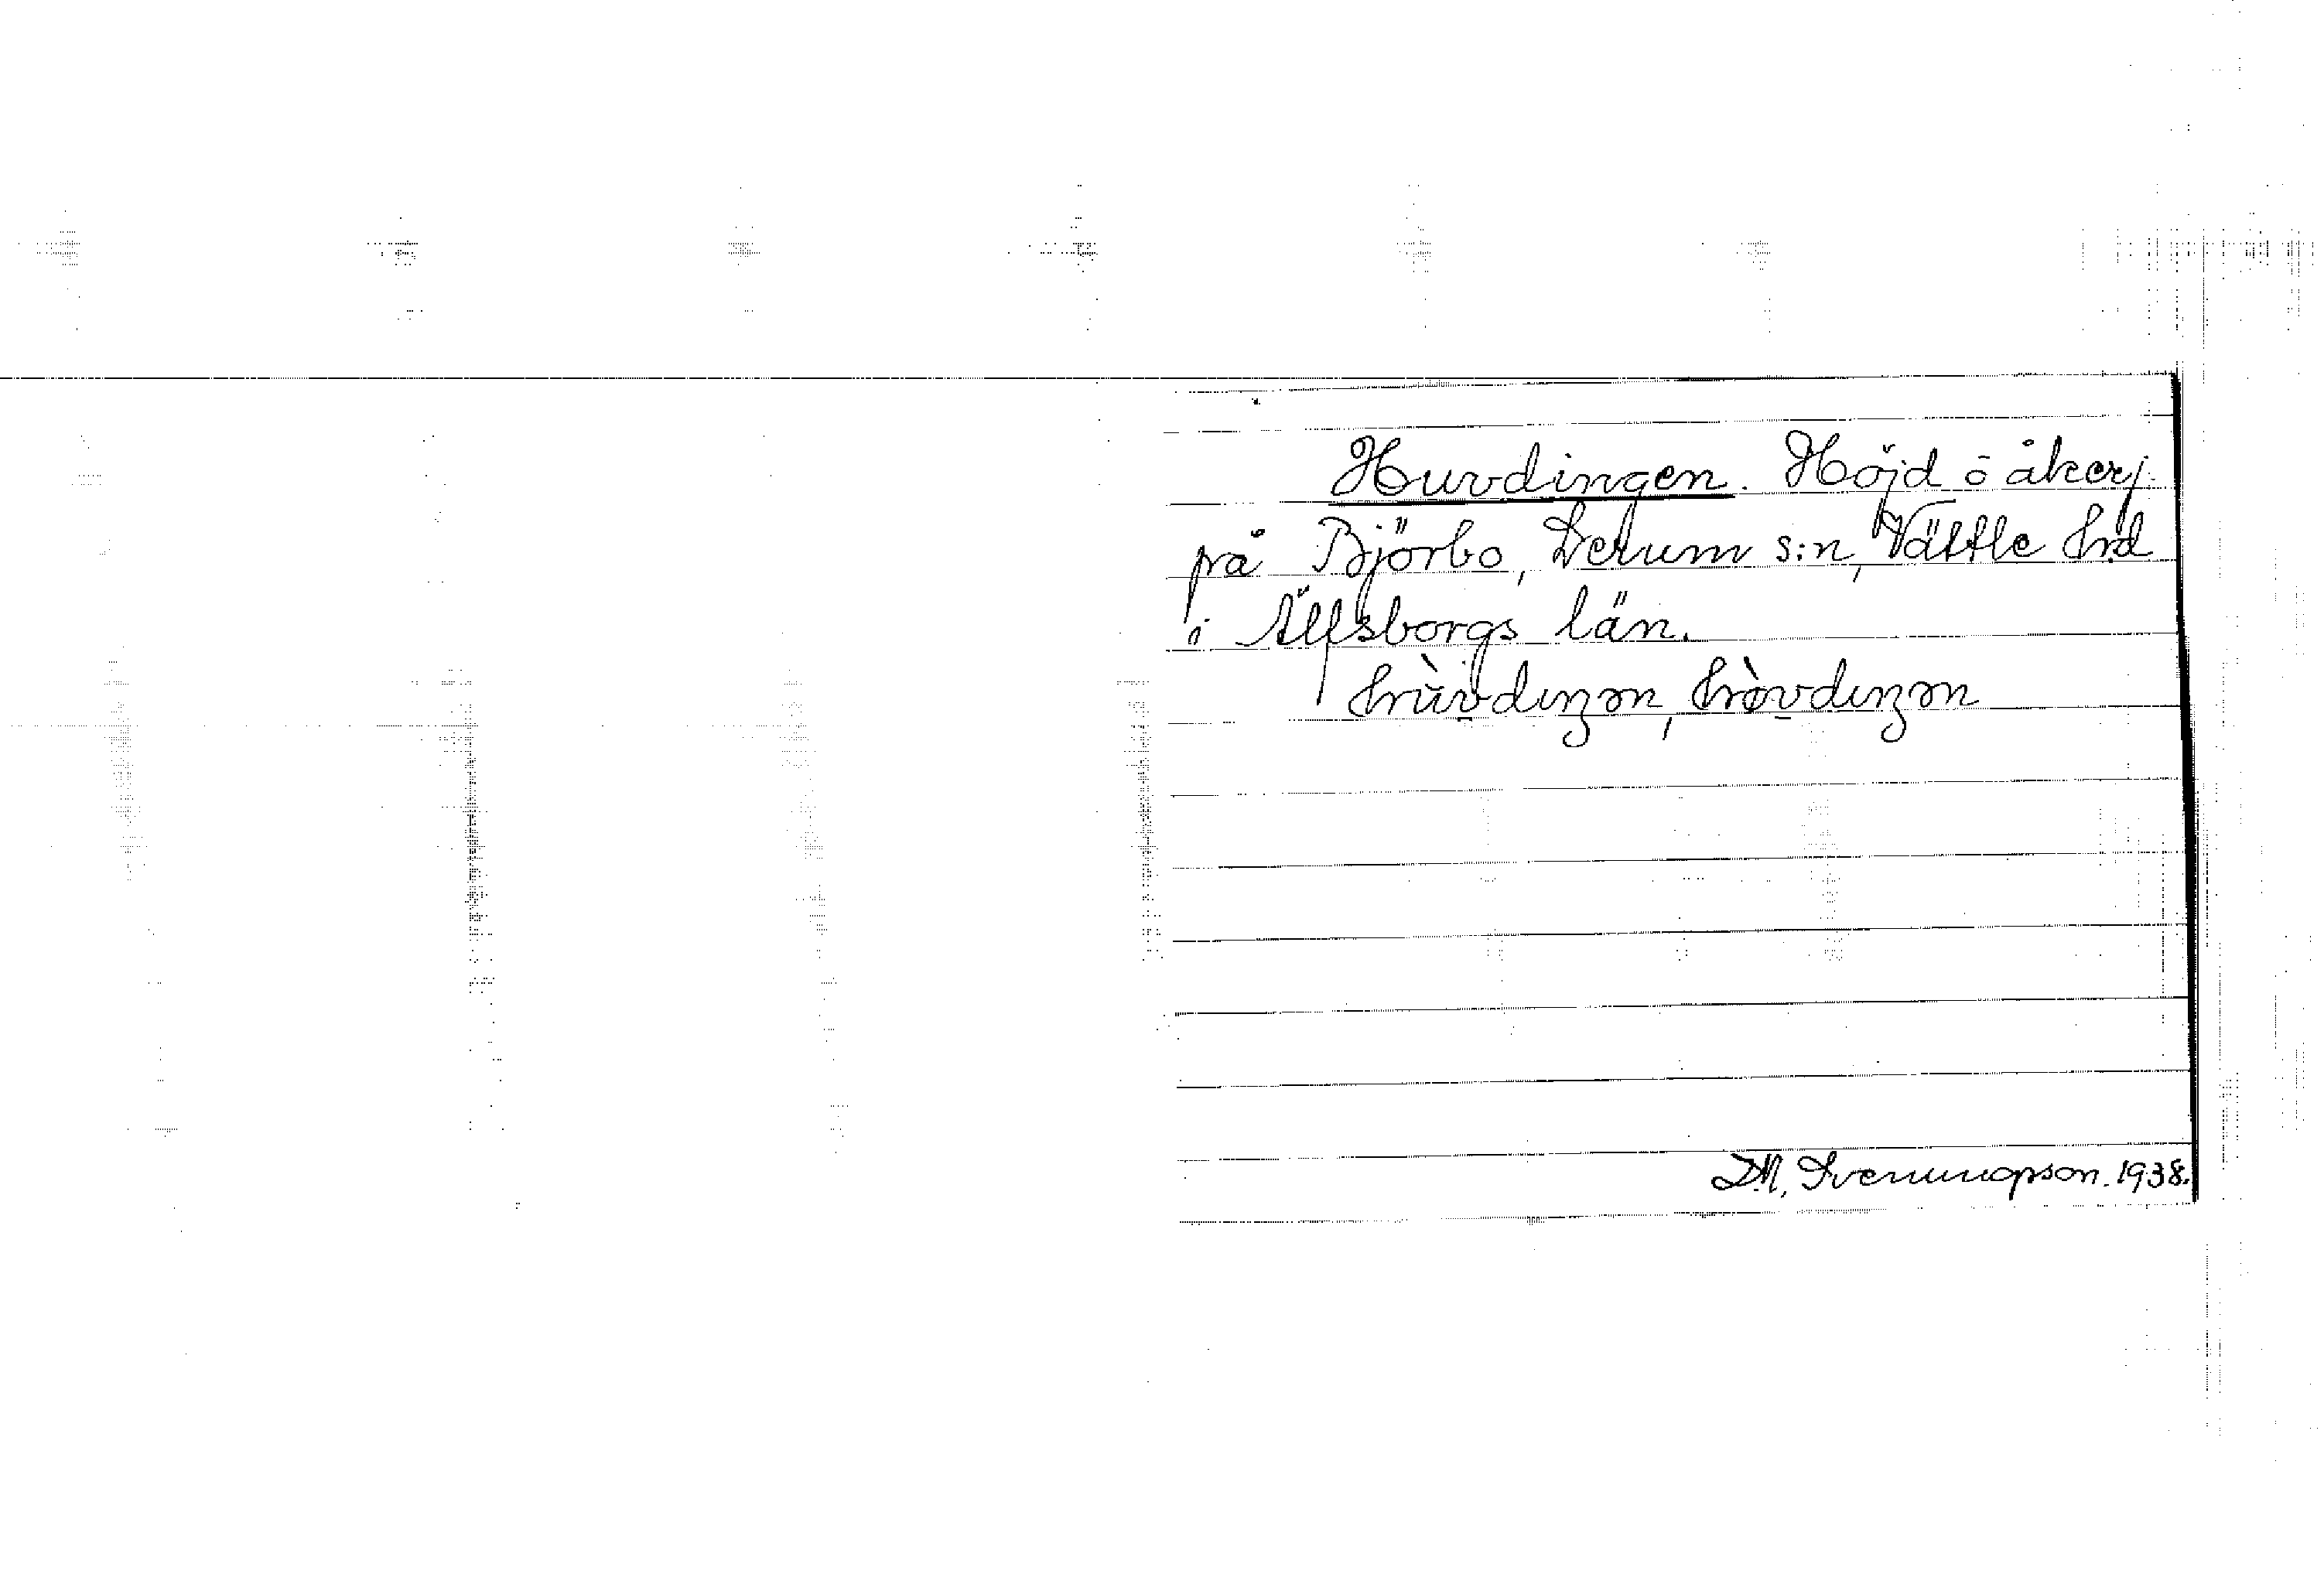 Huvdingen. Höjd o åkerj.
på Björbo, Lerum s:n, Vättle hd
i Älfsborgs län.
hùvdıŋən, hòvdıŋən
D.A. Svenungsson. 1938.